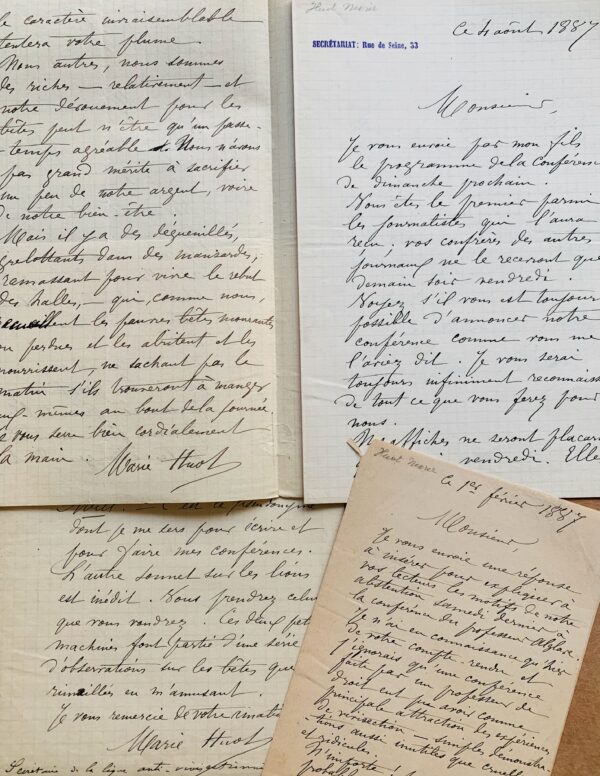 le caractère invraisemblable
tentera votre plume.
Nous autres, nous sommes
des riches — relativement — et
notre dévouement pour les
bêtes peut n'être qu'un passe-
-temps agréable. Nous n'avons
pas grand mérite à sacrifier
un peu de notre argent, voire
de notre bien-être.
Mais il y a des dégueni­llés,
grelottants dans des mansardes,
ramassant pour vivre le rebut
des halles, — qui, comme nous,
recueillent les pauvres bêtes mourantes
ou perdues et les abritent et les
nourrissent, ne sachant pas le
matin s'ils trouveront à manger
eux-mêmes au bout de la journée.
Je vous serre bien cordialement
la main. Marie Huot
Huot Marie
ce 4 août 1887
SECRÉTARIAT: Rue de Seine, 33
Monsieur,
Je vous envoie par mon fils
le programme de la Conférence
de dimanche prochain.
Vous êtes le premier parmi
les journalistes qui l'aura
reçu. vos confrères des autres
journaux ne le recevront que
demain soir vendredi.
Voyez s'il vous est toujours
possible d'annoncer notre
conférence comme vous me
l'aviez dit. Je vous serai
toujours infiniment reconnaiss
de tout ce que vous ferez pour
nous.
affiches ne seront placar
vendredi. Elle
c'est le pseudonyme
dont je me sers pour écrire et
pour faire mes conférences.
L'autre sonnet sur les lions
est inédit. Vous prendrez celui
que vous voudrez. Ces deux pet
machines font partie d'une série
d'observations sur les bêtes que
rimaillées en m'amusant.
Je vous remercie de votre
Marie Huot
Secrétaire de la ligue anti-vivisectionn
Huot Marie
Ce 1er février 1887
Monsieur
Je vous envoie une réponse
à insérer pour expliquer à
vos lecteurs les motifs de notre
abstention samedi dernier à
la conférence du professeur
Je n'ai eu connaissance qu'hier
de votre compte-rendu et
j'ignorais qu'une conférence
faite par un professeur de
droit eut pu avoir comme
principal attraction des expériences
de vivisection — simples démonstra-
-tions aussi inutiles que cruelles
et ridicules.
N'importe!